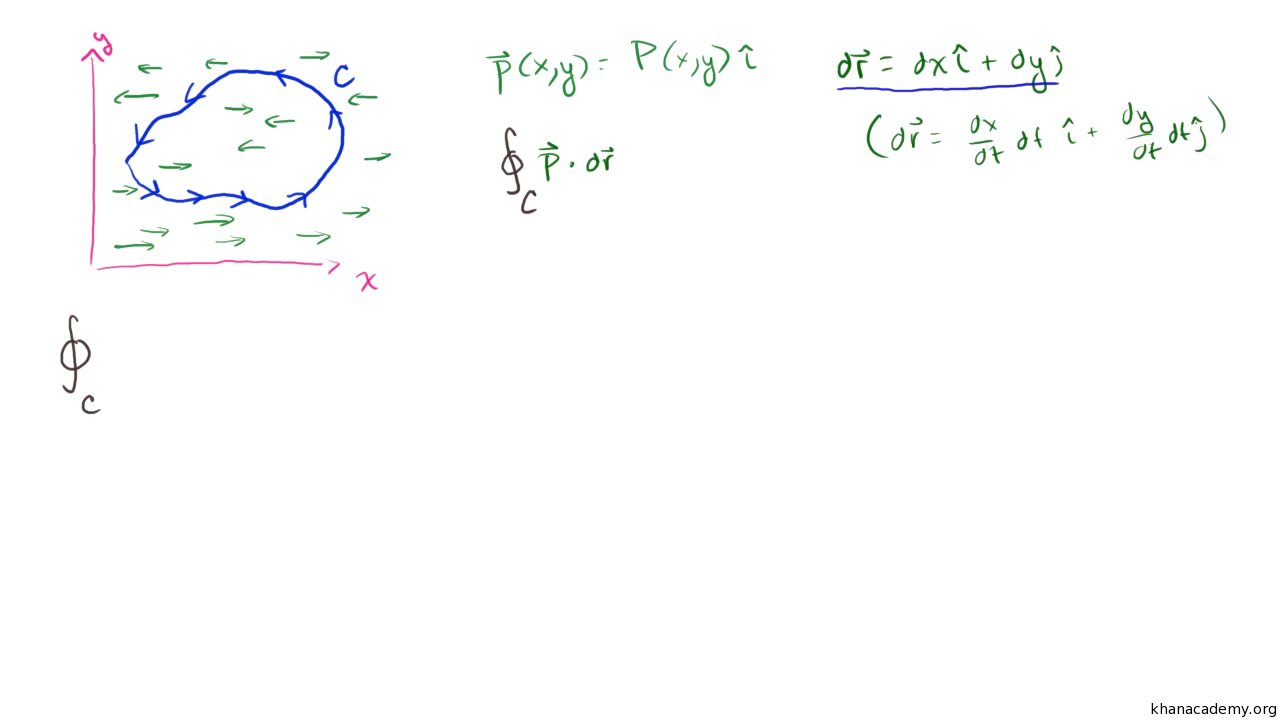 y
C
x
p⃗(x,y) = P(x,y) î
∮_C p⃗ · dr⃗
dr⃗ = dx î + dy ĵ
(dr⃗ = dx/dt dt î + dy/dt dt ĵ)
∮_C
khanacademy.org